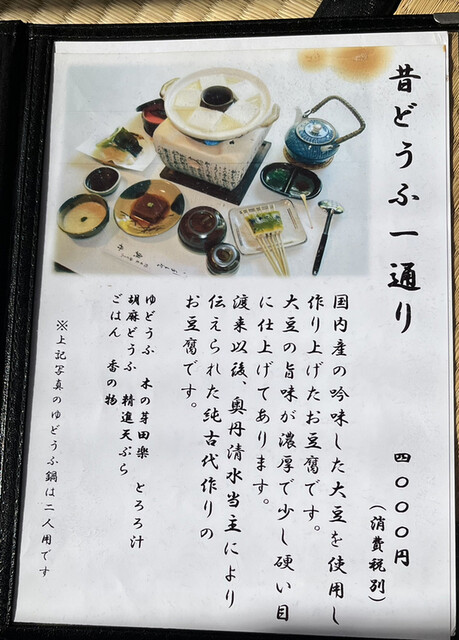 昔どうふ一通り
四〇〇〇円
(消費税別)
国内産の吟味した大豆を使用し
作り上げたお豆腐です。
大豆の旨味が濃厚で少し硬い目
に仕上げてあります。
渡来以後、奥丹清水当主により
伝えられた純古代作りの
お豆腐です。
ゆどうふ　木の芽田楽　とろろ汁
胡麻どうふ　精進天ぷら
ごはん　香の物
※上記写真のゆどうふ鍋は二人用です